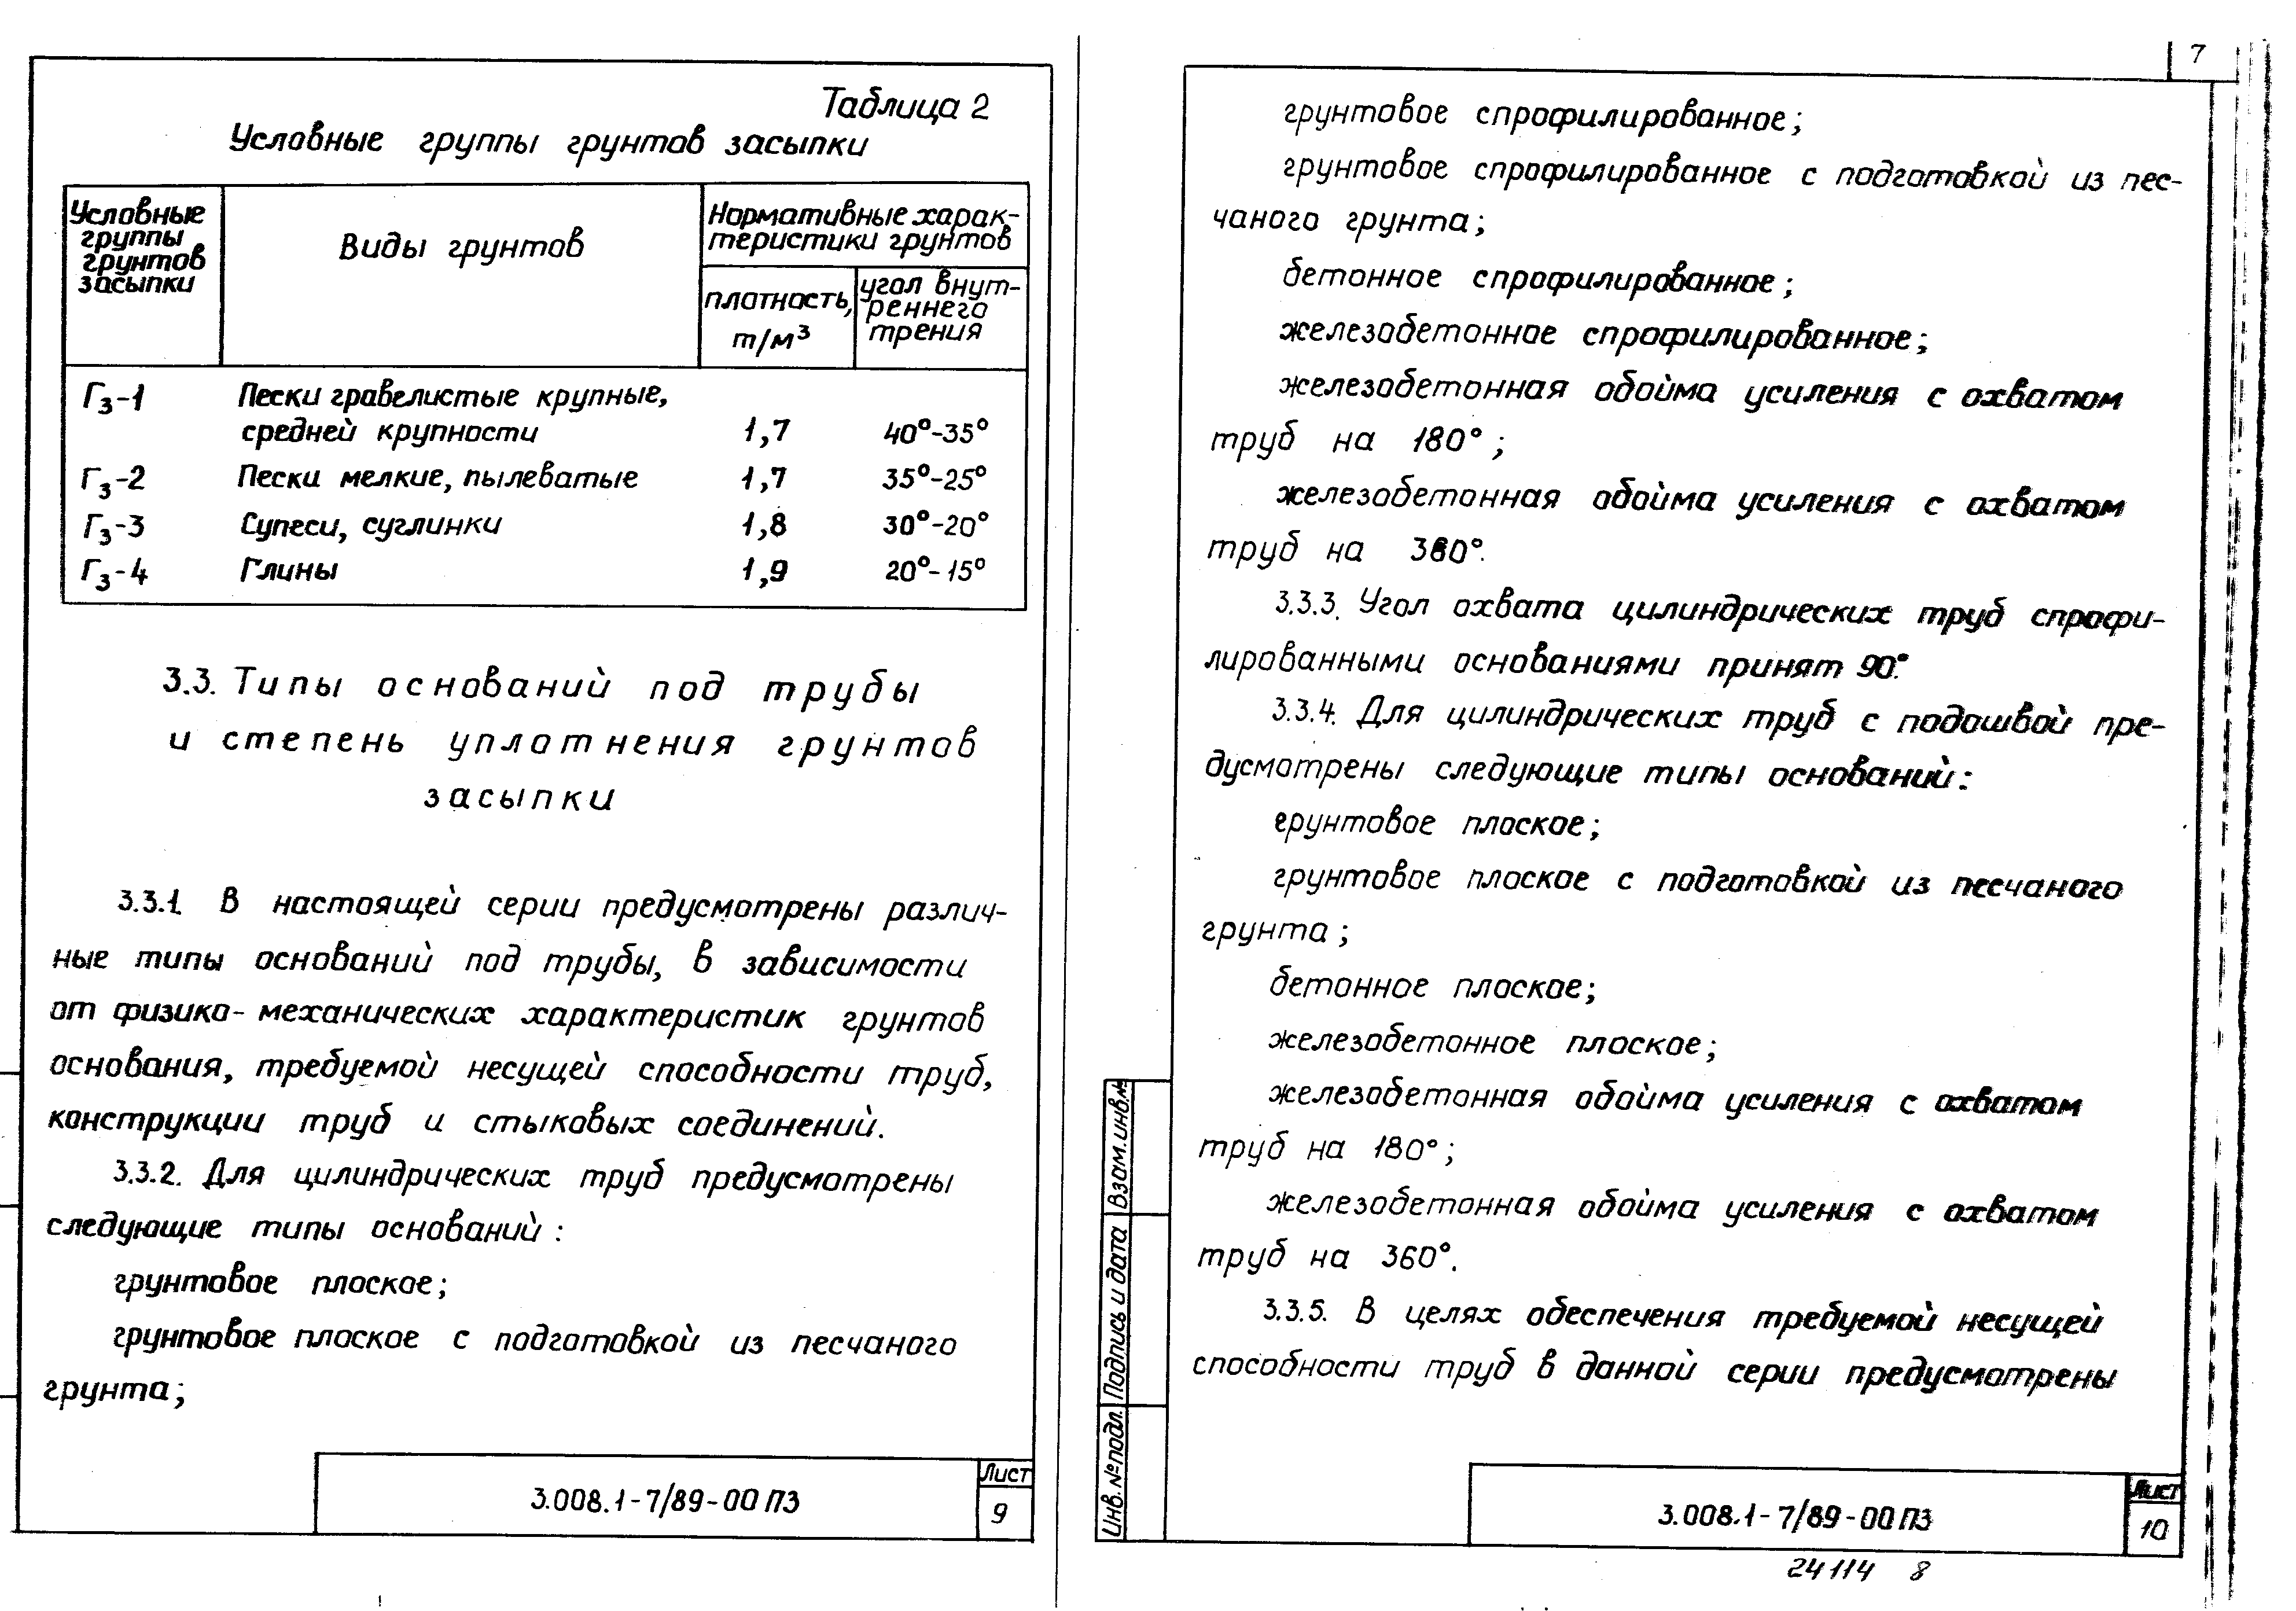 Таблица 2
Условные группы грунтов засыпки
Условные
группы
грунтов
засыпки
Виды грунтов
Нормативные харак-
теристики грунтов
плотность,
т/м³
угол внут-
реннего
трения
Гз-1 Пески гравелистые крупные,
средней крупности 1,7 40°-35°
Гз-2 Пески мелкие, пылеватые 1,7 35°-25°
Гз-3 Супеси, суглинки 1,8 30°-20°
Гз-4 Глины 1,9 20°-15°
3.3. Типы оснований под трубы
и степень уплотнения грунтов
засыпки
3.3.1. В настоящей серии предусмотрены различ-
ные типы оснований под трубы, в зависимости
от физико-механических характеристик грунтов
основания, требуемой несущей способности труб,
конструкции труб и стыковых соединений.
3.3.2. Для цилиндрических труб предусмотрены
следующие типы оснований:
грунтовое плоское;
грунтовое плоское с подготовкой из песчаного
грунта;
3.008.1-7/89-00 ПЗ
Лист
9
7
грунтовое спрофилированное;
грунтовое спрофилированное с подготовкой из пес-
чаного грунта;
бетонное спрофилированное;
железобетонное спрофилированное;
железобетонная обойма усиления с охватом
труб на 180°;
железобетонная обойма усиления с охватом
труб на 360°.
3.3.3. Угол охвата цилиндрических труб спрофи-
лированными основаниями принят 90°.
3.3.4. Для цилиндрических труб с подошвой пре-
дусмотрены следующие типы оснований:
грунтовое плоское;
грунтовое плоское с подготовкой из песчаного
грунта;
бетонное плоское;
железобетонное плоское;
железобетонная обойма усиления с охватом
труб на 180°;
железобетонная обойма усиления с охватом
труб на 360°.
3.3.5. В целях обеспечения требуемой несущей
способности труб в данной серии предусмотрены
Взам.инв.№
Подпись и дата
Инв.№подл.
3.008.1-7/89-00 ПЗ
Лист
10
24114 8